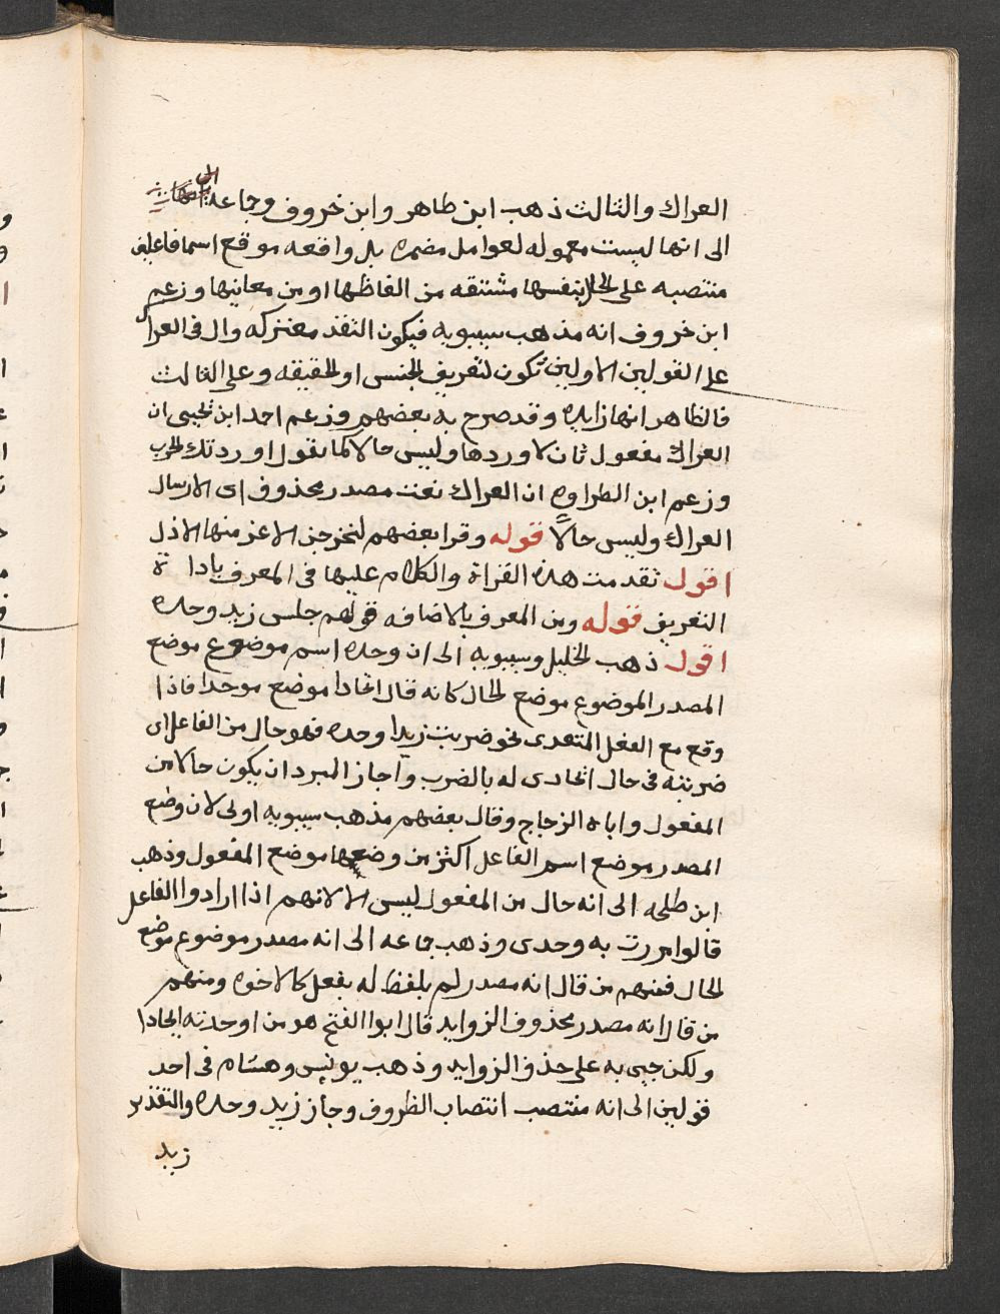 العراك والثالث ذهب ابن طاهر وابن خروف وجماعه
الى انها ليست معموله لعوامل مضمره بل واقعه موقع اسما فاعلين
منتصبه على الحال بنفسها مشتقه من الفاظها او من معانيها وزعم
ابن خروف انه مذهب سيبويه فيكون التقد معتركه وال في العراك
على القولين الاولين تكون لتعريف الجنس او الحقيقه وعلى الثالث
فالظاهر انها زايده وقد صرح به بعضهم وزعم احمد ابن يحيى ان
العراك مفعول ثان لاوردها وليس حالا كما يقول اوردتك الحرب
وزعم ابن الطراوه ان العراك نعت مصدر محذوف اى الارسال
العراك وليس حالًا قوله وقرا بعضهم لنخرجن الاعز منها الاذل
اقول تقدمت هذه القراة والكلام عليها فى المعرف باداة
التعريف قوله ومن المعرف بالاضافه قولهم جلس زيد وحده
اقول ذهب الخليل وسيبويه الى ان وحده اسم موضوع موضع
المصدر الموضوع موضع الحال كانه قال اتحادا موضع موحدا فاذا
وقع مع الفعل المتعدى نحو ضربت زيدا وحده فهو حال من الفاعل اى
ضربته فى حال اتحادى له بالضرب واجاز المبرد ان يكون حالا من
المفعول واباه الزجاج وقال بعضهم مذهب سيبويه اولى لان وضع
المصدر موضع اسم الفاعل اكثر من وضعها موضع المفعول وذهب
ابن طلحه الى انه حال من المفعول ليس الا لانهم اذا ارادوا الفاعل
قالوا مررت به وحدى وذهب جماعه الى انه مصدر موضوع موضع
الحال فمنهم من قال انه مصدر لم يلفظ له بفعل كالاخوه ومنهم
من قال انه مصدر محذوف الزوايد قال ابوا الفتح هو من اوحدته ايحادا
ولكن جيى به على حذف الزوايد وذهب يونس وهشام فى احد
قولين الى انه منتصب انتصاب الظروف وجاز زيد وحده والتقدير
زيد